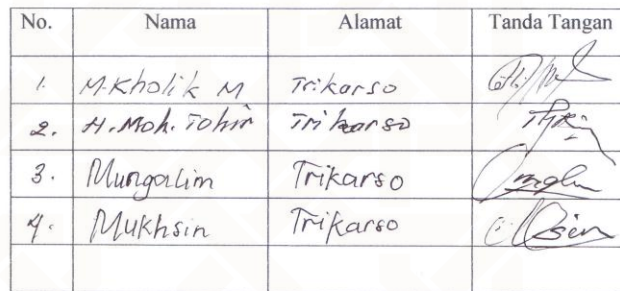 No. Nama Alamat Tanda Tangan
1. M. Kholik M Trikarso
2. H. Moh. Tohir Trikarso
3. Mungalim Trikarso
4. Mukhsin Trikarso